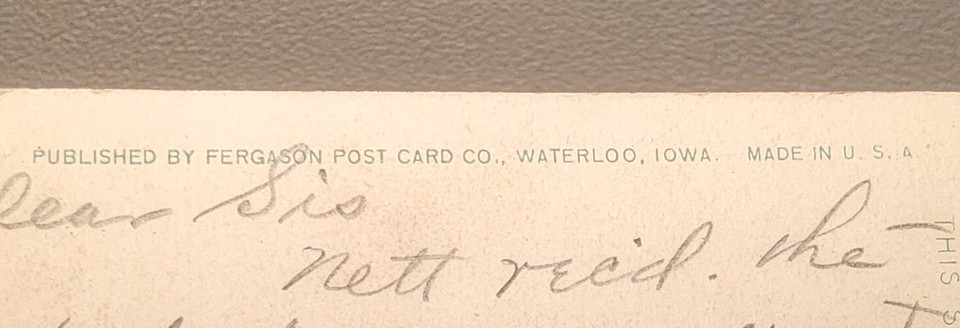 PUBLISHED BY FERGASON POST CARD CO., WATERLOO, IOWA. MADE IN U. S. A
Dear Sis
Nett rec'd. the
THIS S